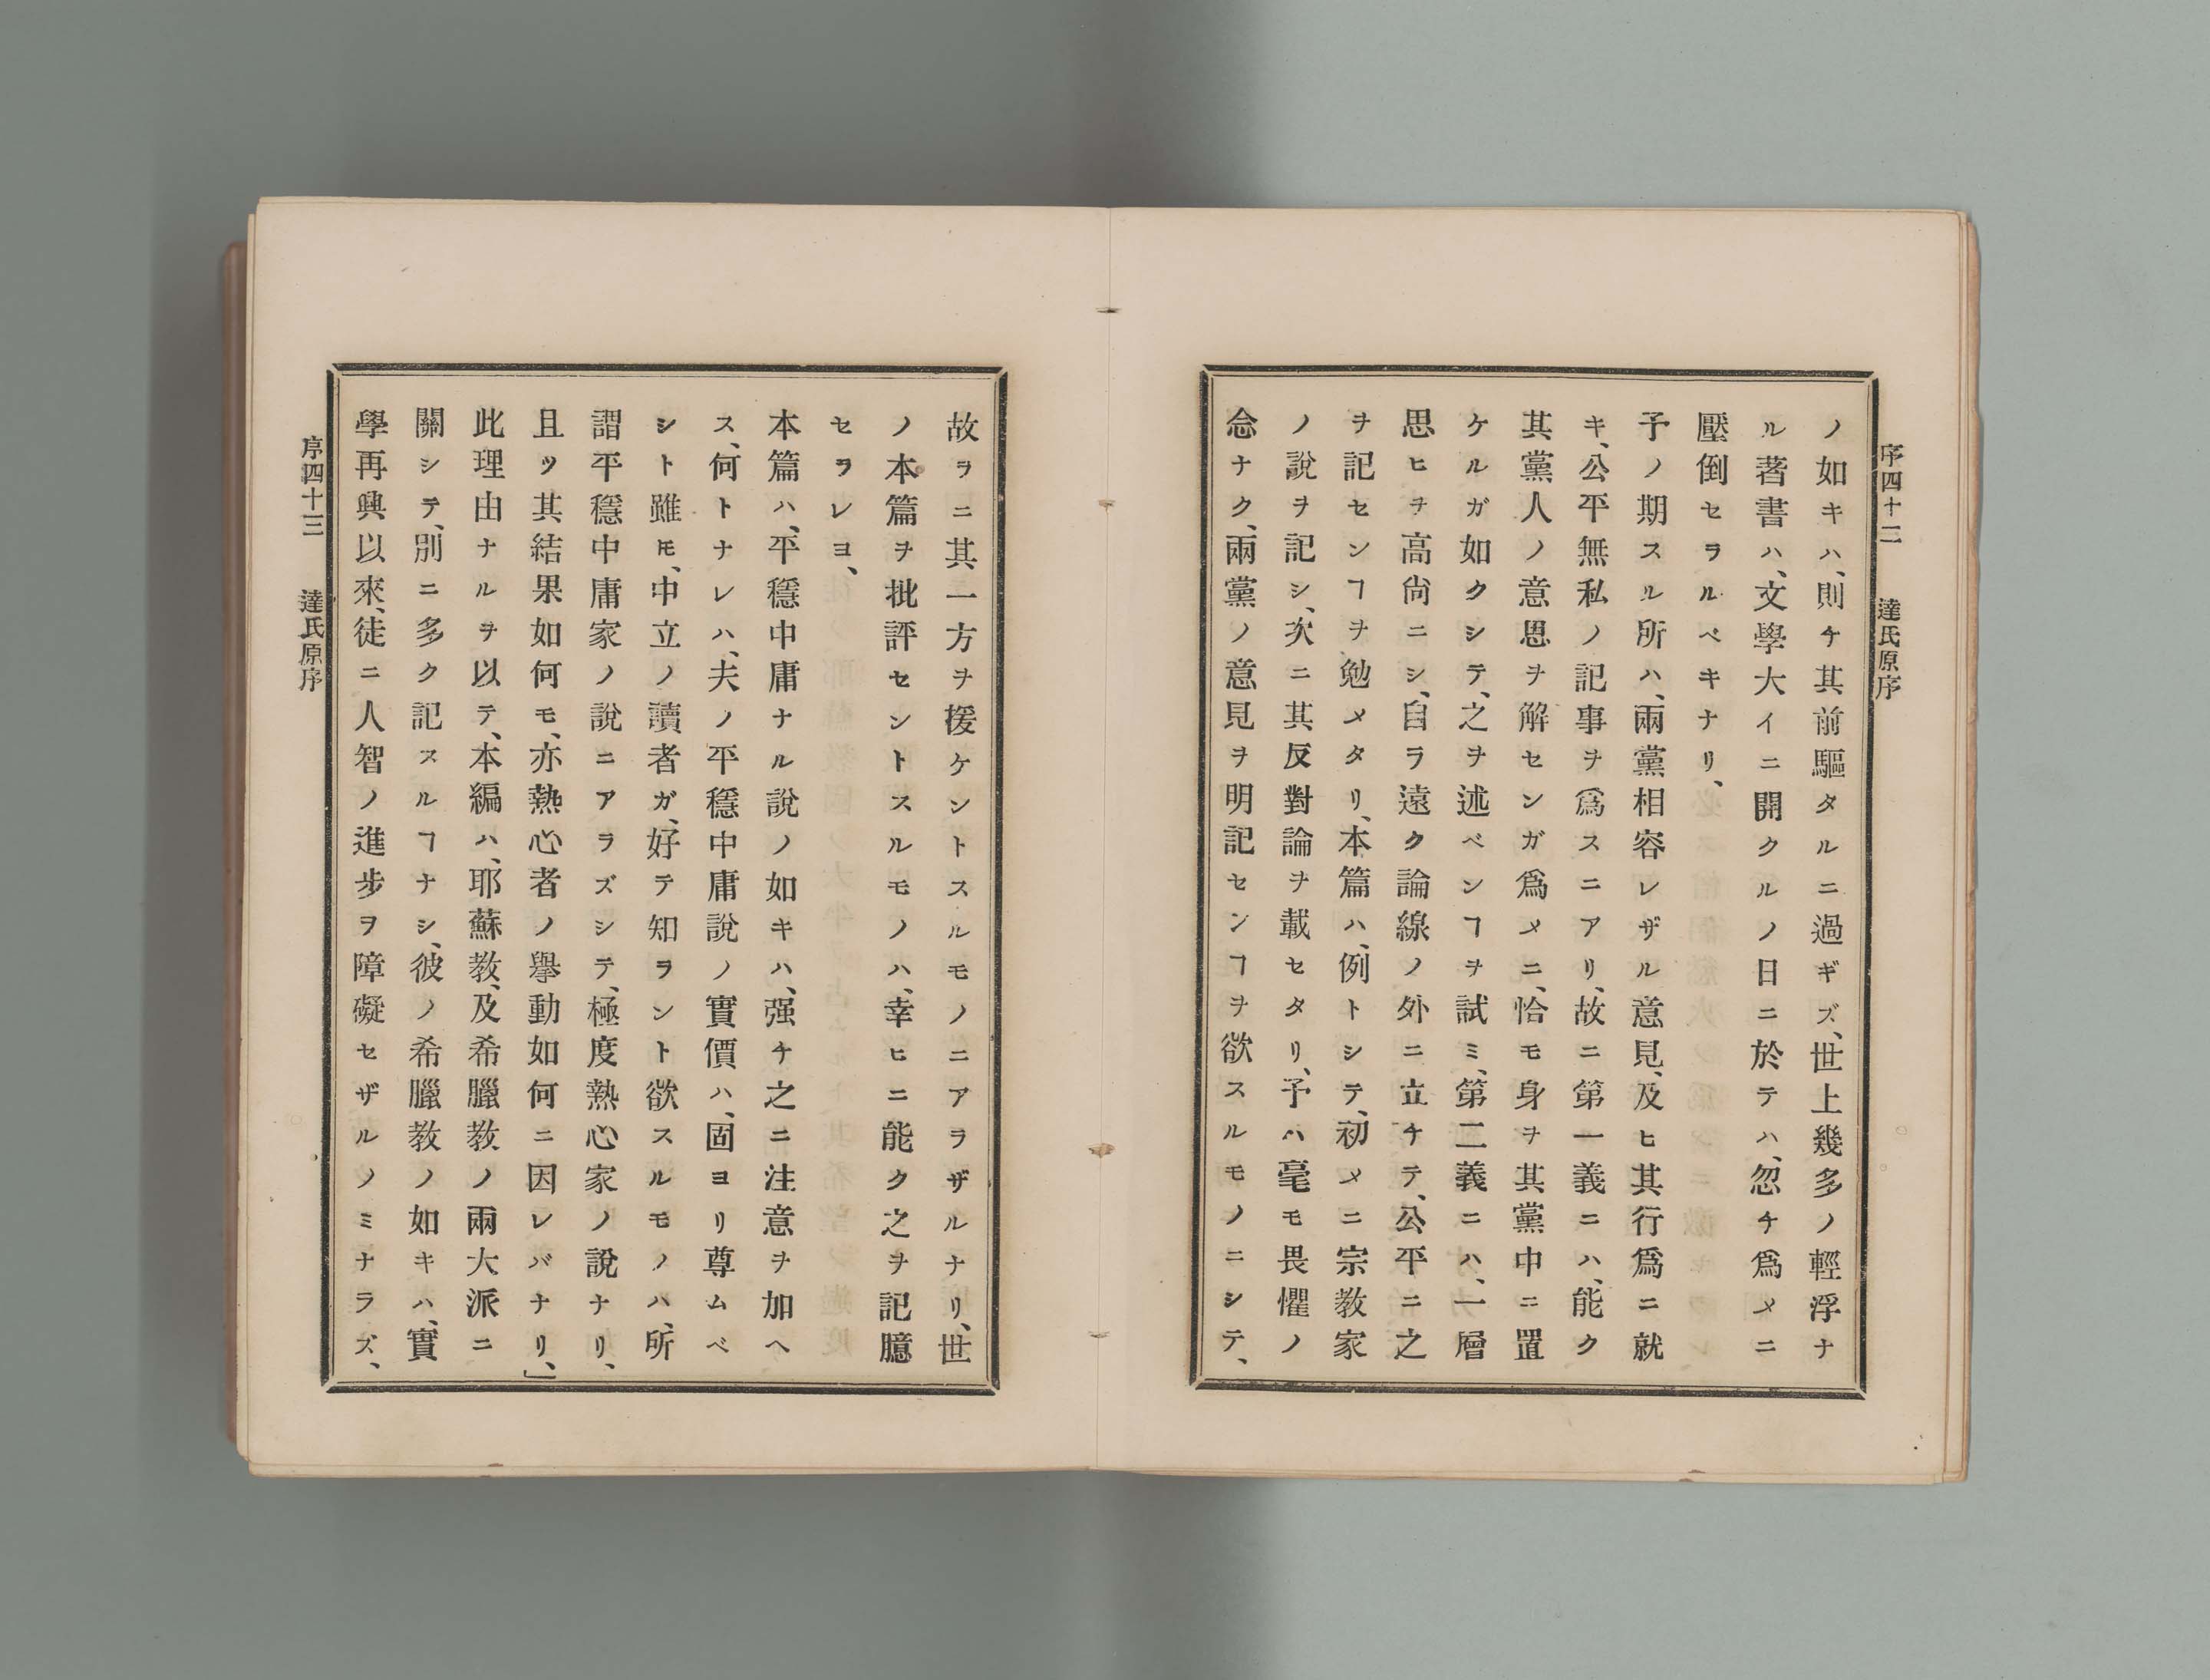 序四十二　達氏原序
ノ如キハ、則チ其前驅タルニ過ギズ、世上幾多ノ輕浮ナ
ル著書ハ、文學大イニ開クルノ日ニ於テハ、忽チ爲メニ
壓倒セラルベキナリ、
予ノ期スル所ハ、兩黨相容レザル意見、及ヒ其行爲ニ就
キ、公平無私ノ記事ヲ爲スニアリ、故ニ第一義ニハ、能ク
其黨人ノ意思ヲ解センガ爲メニ、恰モ身ヲ其黨中ニ置
ケルガ如クシテ、之ヲ述ベンヿヲ試ミ、第二義ニハ、一層
思ヒヲ高尙ニシ、自ラ遠ク論線ノ外ニ立チテ、公平ニ之
ヲ記センヿヲ勉メタリ、本篇ハ、例トシテ、初メニ宗教家
ノ說ヲ記シ、次ニ其反對論ヲ載セタリ、予ハ毫モ畏懼ノ
念ナク、兩黨ノ意見ヲ明記センヿヲ欲スルモノニシテ、
故ラニ其一方ヲ援ケントスルモノニアラザルナリ、世
ノ本篇ヲ批評セントスルモノハ、幸ヒニ能ク之ヲ記臆
セラレヨ、
本篇ハ、平穩中庸ナル說ノ如キハ、强チ之ニ注意ヲ加ヘ
ス、何トナレハ、夫ノ平穩中庸說ノ實價ハ、固ヨリ尊ムベ
シト雖𪜈、中立ノ讀者ガ、好テ知ラント欲スルモノハ、所
謂平穩中庸家ノ說ニアラズシテ、極度熱心家ノ說ナリ、
且ツ其結果如何モ、亦熱心者ノ擧動如何ニ因レバナリ、」
此理由ナルヲ以テ、本編ハ、耶蘇教、及希臘教ノ兩大派ニ
關シテ、別ニ多ク記スルヿナシ、彼ノ希臘教ノ如キハ、實
學再興以來、徒ニ人智ノ進步ヲ障礙セザルノミナラズ、
序四十三　達氏原序